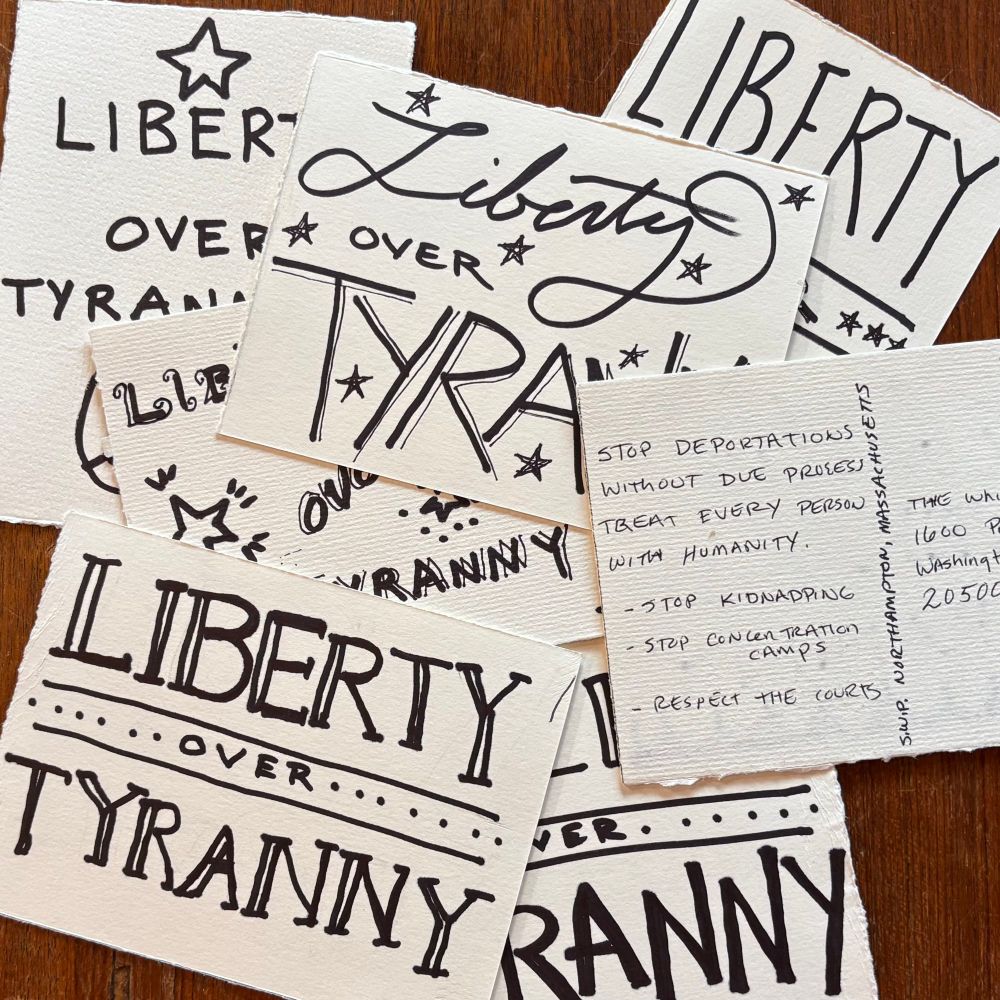 LIBERT
OVER
TYRANN
Liberty
OVER
TYRA
LIBERTY
LIB
OVE
TYRANNY
LIBERTY
OVER
TYRANNY
VER
RANNY
STOP DEPORTATIONS
WITHOUT DUE PROCESS
TREAT EVERY PERSON
WITH HUMANITY.
- STOP KIDNAPPING
- STOP CONCENTRATION
CAMPS
- RESPECT THE COURTS
S.W.P. NORTHAMPTON, MASSACHUSETTS
THE WHI
1600 P
Washingt
20500